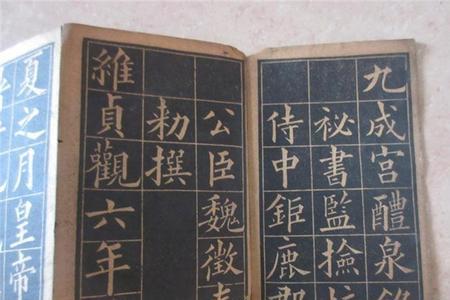 九成宮醴泉銘
祕書監撿挍
侍中鉅鹿郡
公臣魏徵奉
勑撰
維貞觀六年
夏之月皇帝